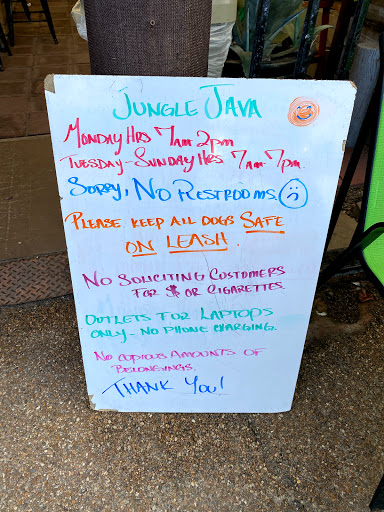 Jungle Java
Monday Hrs 7am-2pm
Tuesday-Sunday Hrs 7am-7pm.
Sorry, No Restrooms.
Please keep all dogs safe
on leash.
No Soliciting Customers
for $ or cigarettes.
Outlets for laptops
only - no phone charging.
No copious amounts of
belongings.
Thank You!